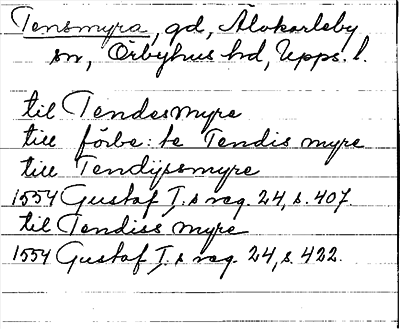 Tensmyra, gd, Älvkarleby
sn, Örbyhus hd, Upps. l.
til Tendesmyre
till förbe:te Tendis myre
till Tendijssmyre
1554 Gustaf I:s reg. 24, s. 407.
til Tendiss myre
1554 Gustaf I:s reg. 24, s. 422.